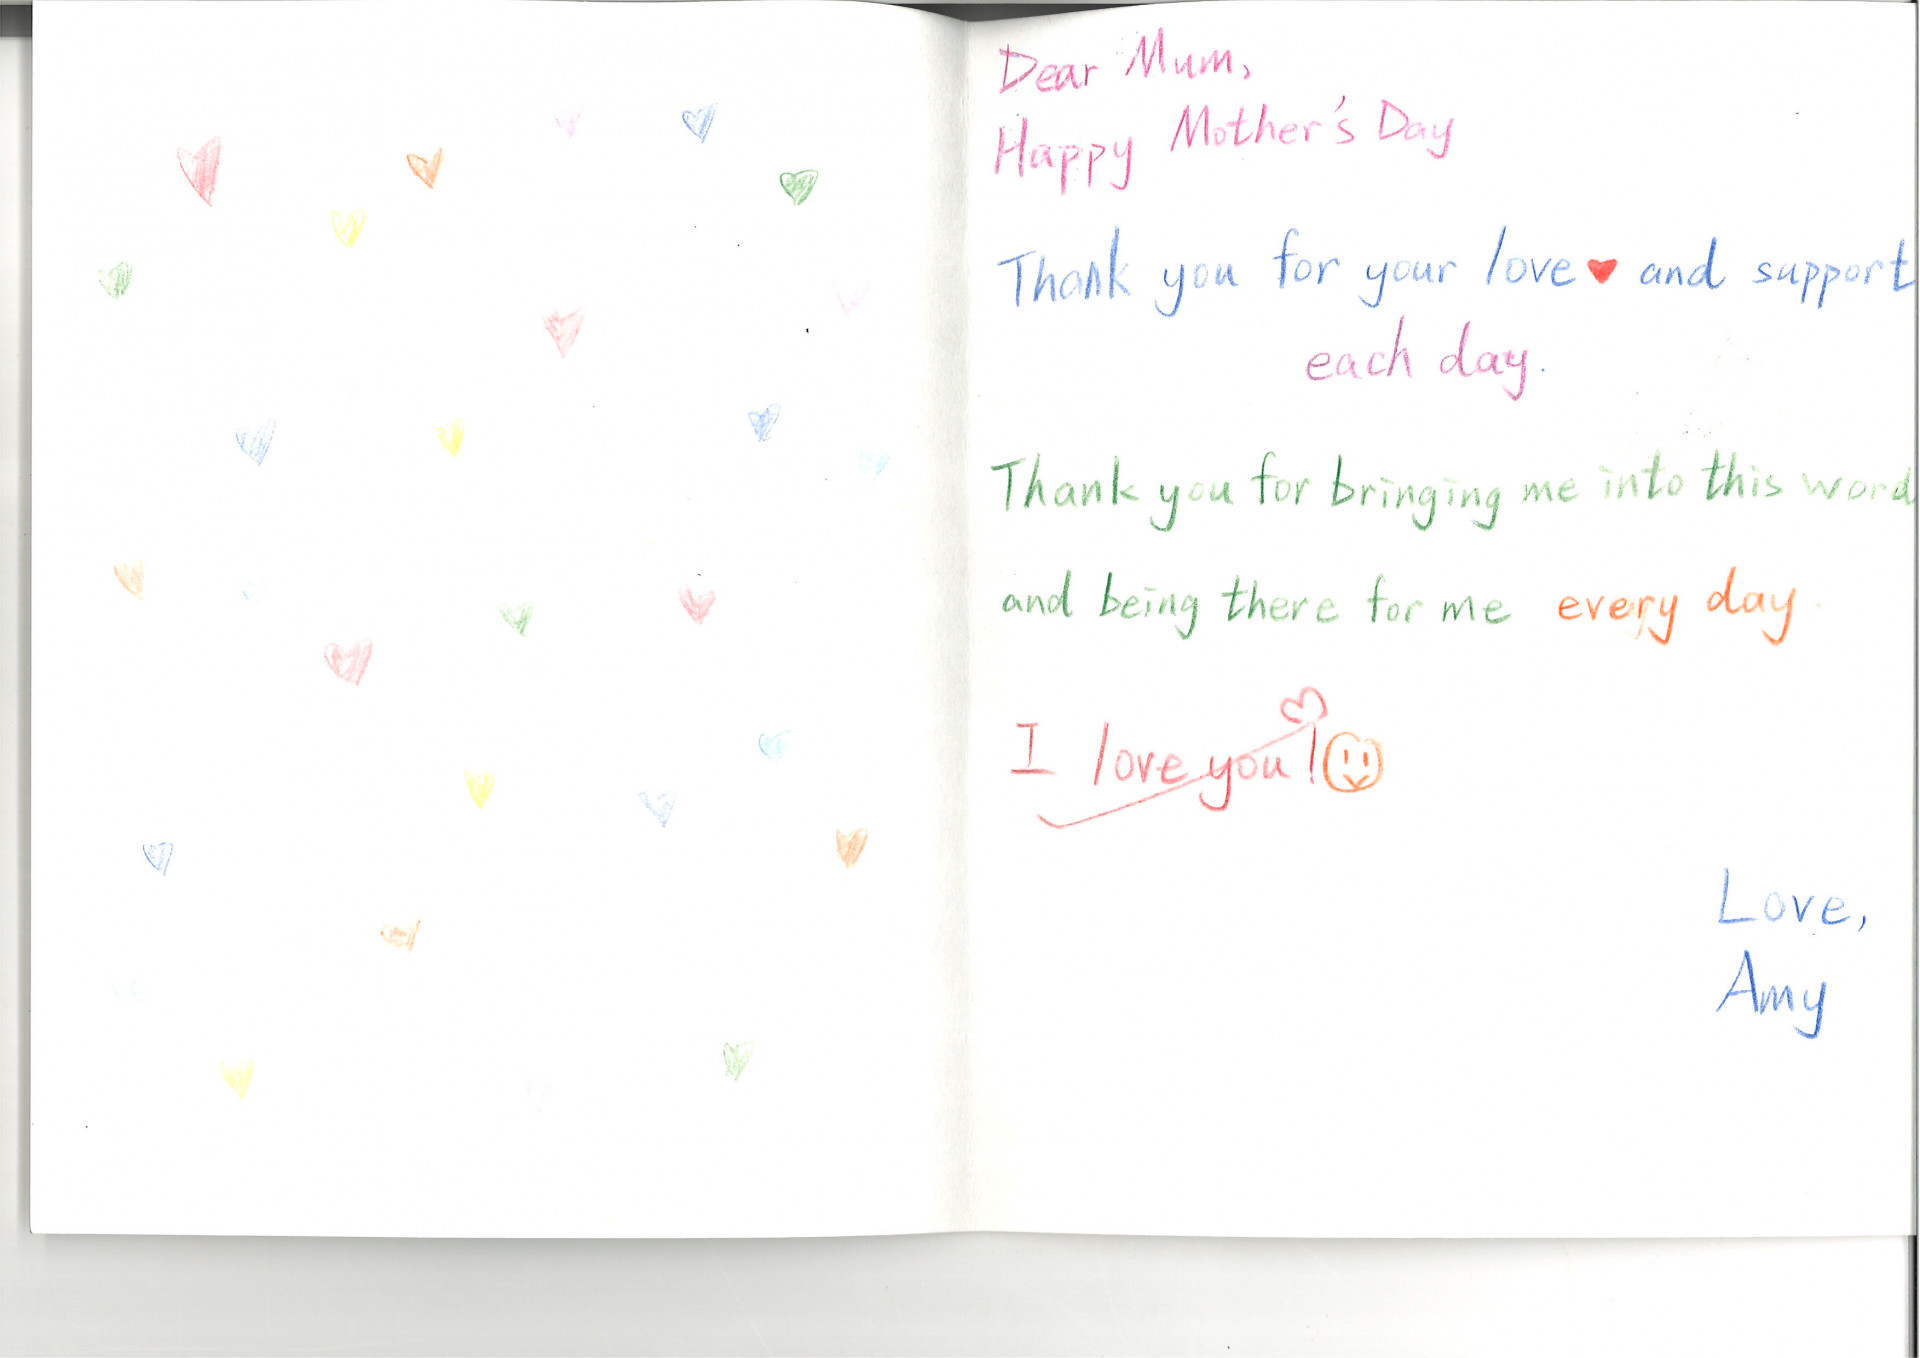 Dear Mum,
Happy Mother's Day
Thank you for your love♥ and support
each day.
Thank you for bringing me into this word
and being there for me every day.
I love you!
Love,
Amy